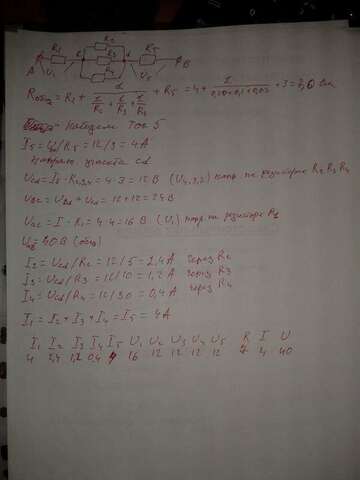 R2
R1 R3 R5
A U1 c R4 d U5 B
Rобщ = R1 + 1/(1/R2 + 1/R3 + 1/R4) + R5 = 4 + 1/(0,20+0,1+0,03) + 3 =
Находим ток 5
I5 = U5/R5 = 12/3 = 4 A
участка cd
Ucd = I5 · R2,3,4 = 4 · 3 = 12 В (U4,3,2) напр. на резисторе R2 R3 R4
= Ucd + = 12 + 12 = 24 В
Uac = I · R1 = 4 · 4 = 16 В (U1) напр. на резисторе R1
Uab = 40 В (общ)
I2 = Ucd/R2 = 12/5 = 2,4 A через R2
I3 = Ucd/R3 = 12/10 = 1,2 A через R3
I4 = Ucd/R4 = 12/30 = 0,4 A через R4
I1 = I2 + I3 + I4 = I5 = 4 A
I1 I2 I3 I4 I5 U1 U2 U3 U4 U5 R I U
4 2,4 1,2 0,4 4 16 12 12 12 12 4 40